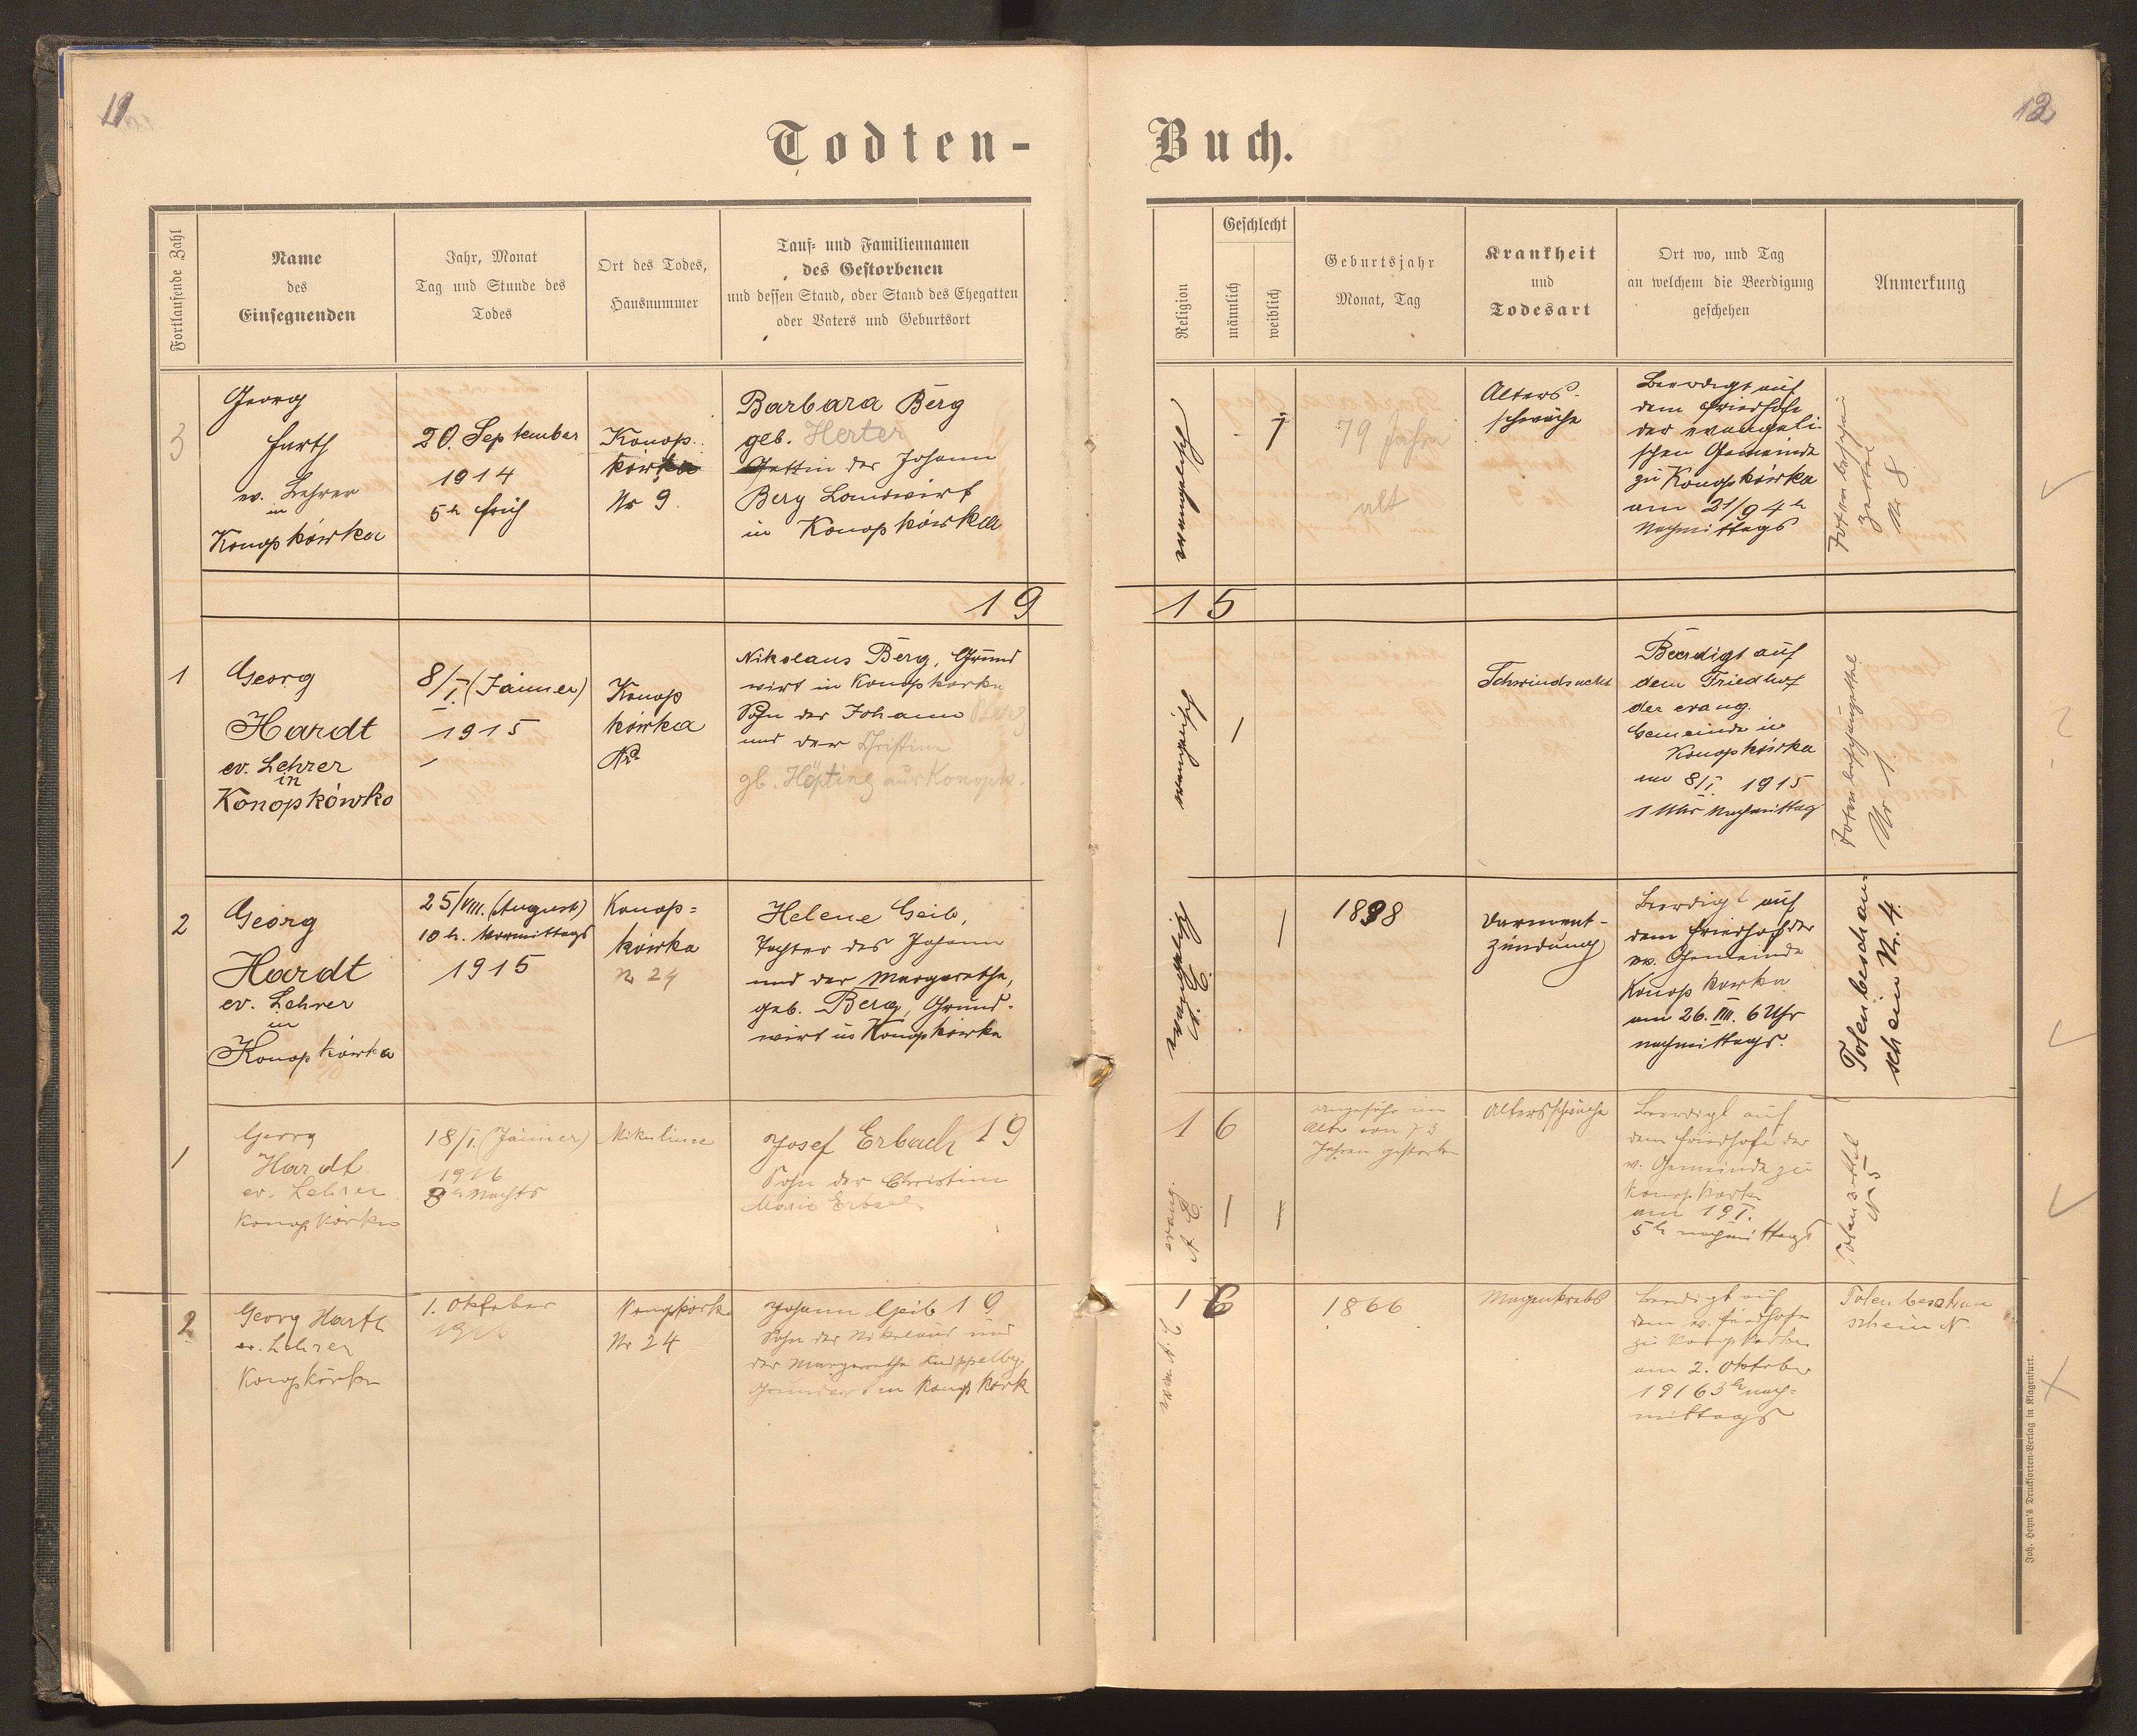 11
12
Todten-
Buch.
Fortlaufende Zahl
Name
des
Einsegnenden
Jahr, Monat
Tag und Stunde des
Todes
Ort des Todes,
Hausnummer
Tauf- und Familiennamen
des Gestorbenen
und dessen Stand, oder Stand des Ehegatten
oder Vaters und Geburtsort
Religion
Geschlecht
männlich
weiblich
Geburtsjahr
Monat, Tag
Krankheit
und
Todesart
Ort wo, und Tag
an welchem die Beerdigung
geschehen
Anmerkung
3
Georg
Harth
ev. Lehrer
in
Konopkówka
20. September
1914
5h früh
Konop-
kówka
Nr 9
Barbara Berg
geb. Herter
Gattin des Johann
Berg Landwirt
in Konopkówka
evangelisch
1
79 Jahre
alt
Alters-
schwäche
Beerdigt auf
dem Friedhofe
der evangeli-
schen Gemeinde
zu Konopkówka
am 21/9 4h
Nachmittags
Totenbeschau
zettel
N. 8
19
15
1
Georg
Hardt
ev. Lehrer
in
Konopkówka
8/I. (Jänner)
1915
Konop
kówka
Nikolaus Berg, Grund
wirt in Konopkówka
Sohn des Johann Berg
und der Christine
gb. Höpting aus Konopk.
evangelisch
1
Schwindsucht
Beerdigt auf
dem Friedhof
der evang.
Gemeinde in
Konopkówka
am 8/I. 1915
1 Uhr Nachmittag
Nr 1.
2
Georg
Hardt
ev. Lehrer
in
Konopkówka
25/VIII. (August)
10 h. Vormittags
1915
Konop=
kówka
N 24
Helene Geib,
Tochter des Johann
und der Margarethe,
geb. Berg, Grund-
wirt in Konopkówka
evangelisch
1
1898
Darment-
zündung
Beerdigt auf
dem Friedhof der
ev. Gemeinde
Konopkowka
am 26. VIII. 6 Uhr
nachmittags.
Totenbeschau-
schein Nr. 4.
1
Georg
Hardt
ev. Lehrer
Konopkówka
18/I. (Jänner)
1916
8h Nachts
Mikulince
Josef Erbach
19
Sohn der Christine
Marie Erbach
16
evang.
A. C.
1
1
ungefähr im
Alter von 73
Jahren gestorben
Altersschwäche
Beerdigt auf
dem Friedhofe der
ev. Gemeinde zu
Konopkówka
am 19 I.
5h nachmittags
Totenzettel
N 5
2
Georg Harth
ev. Lehrer
Konopkówka
1. Oktober
1916
Konopkówka
Nr 24
Johann Geib
19
Sohn des Nikolaus und
der Margarethe
Grundwirt in Konopkówk
16
evan. A. C.
1866
Magenkrebs
Beerdigt auf
dem ev. Friedhofe
zu Konopkówka
am 2. Oktober
1916 3h nach=
mittags
Totenbeschau
schein N.
Joh. Heyn's Drucksorten-Verlag in Klagenfurt.